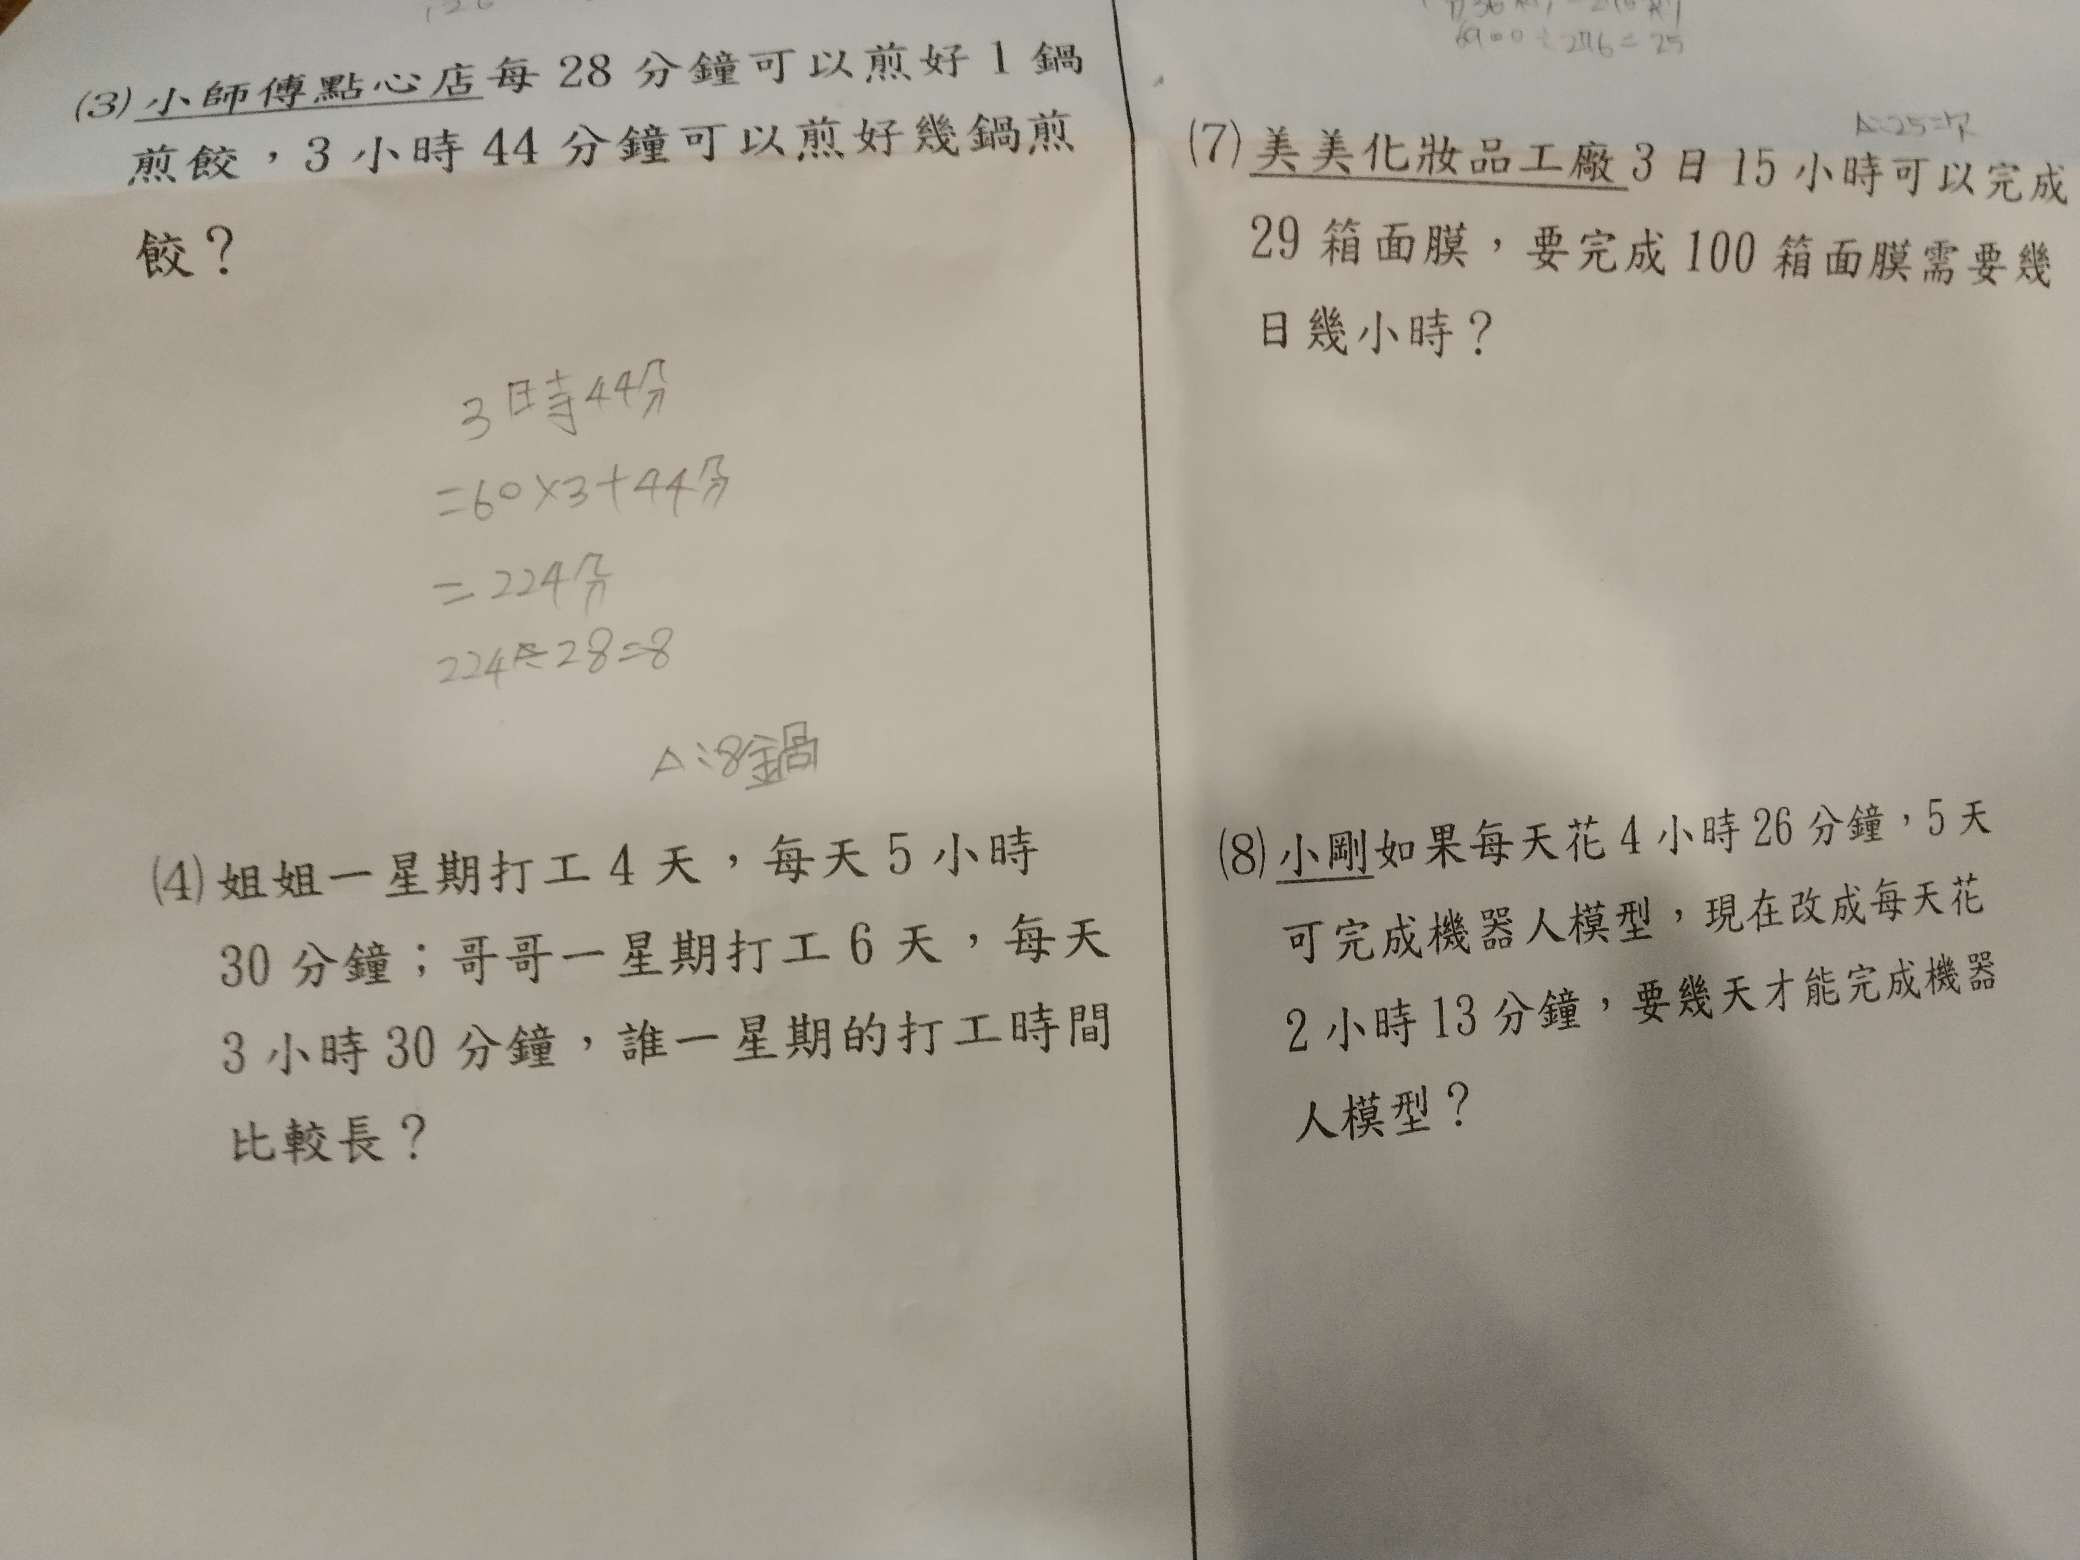 (3)小師傅點心店每 28 分鐘可以煎好 1 鍋
煎餃，3 小時 44 分鐘可以煎好幾鍋煎
餃？
3時44分
=60×3+44分
=224分
224÷28=8
A:8鍋
(4)姐姐一星期打工 4 天，每天 5 小時
30 分鐘；哥哥一星期打工 6 天，每天
3 小時 30 分鐘，誰一星期的打工時間
比較長？
6900÷276=25
(7)美美化妝品工廠 3 日 15 小時可以完成
29 箱面膜，要完成 100 箱面膜需要幾
日幾小時？
(8)小剛如果每天花 4 小時 26 分鐘，5 天
可完成機器人模型，現在改成每天花
2 小時 13 分鐘，要幾天才能完成機器
人模型？